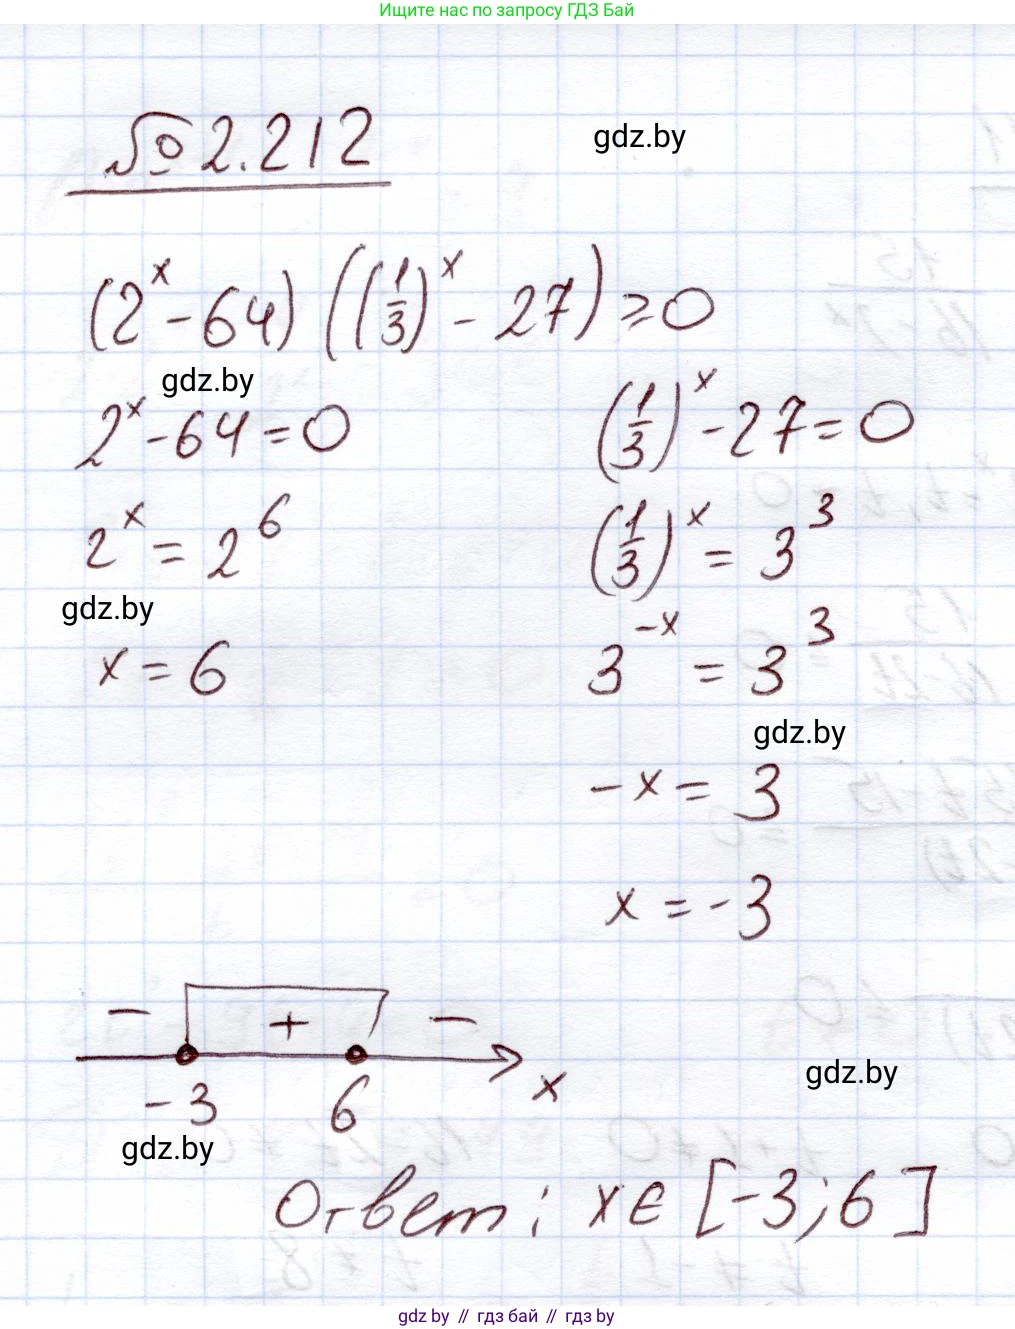 Ищите нас по запросу ГДЗ Бай
№ 2.212
gdz.by
(2^x - 64) ((1/3)^x - 27) ≥ 0
gdz.by
2^x - 64 = 0
(1/3)^x - 27 = 0
2^x = 2^6
(1/3)^x = 3^3
gdz.by
x = 6
3^-x = 3^3
gdz.by
-x = 3
x = -3
- + -
-3 6 x
gdz.by
gdz.by
Ответ: x ∈ [-3; 6]
gdz by // гдз бай // gdz by